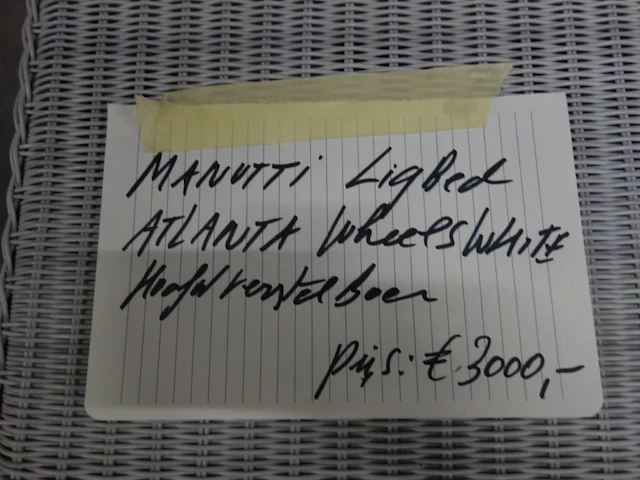 MANUTTi LigBed
ATLANTA Wheels WHITE
Hoofdverstelbaar
Prijs: € 3000,-